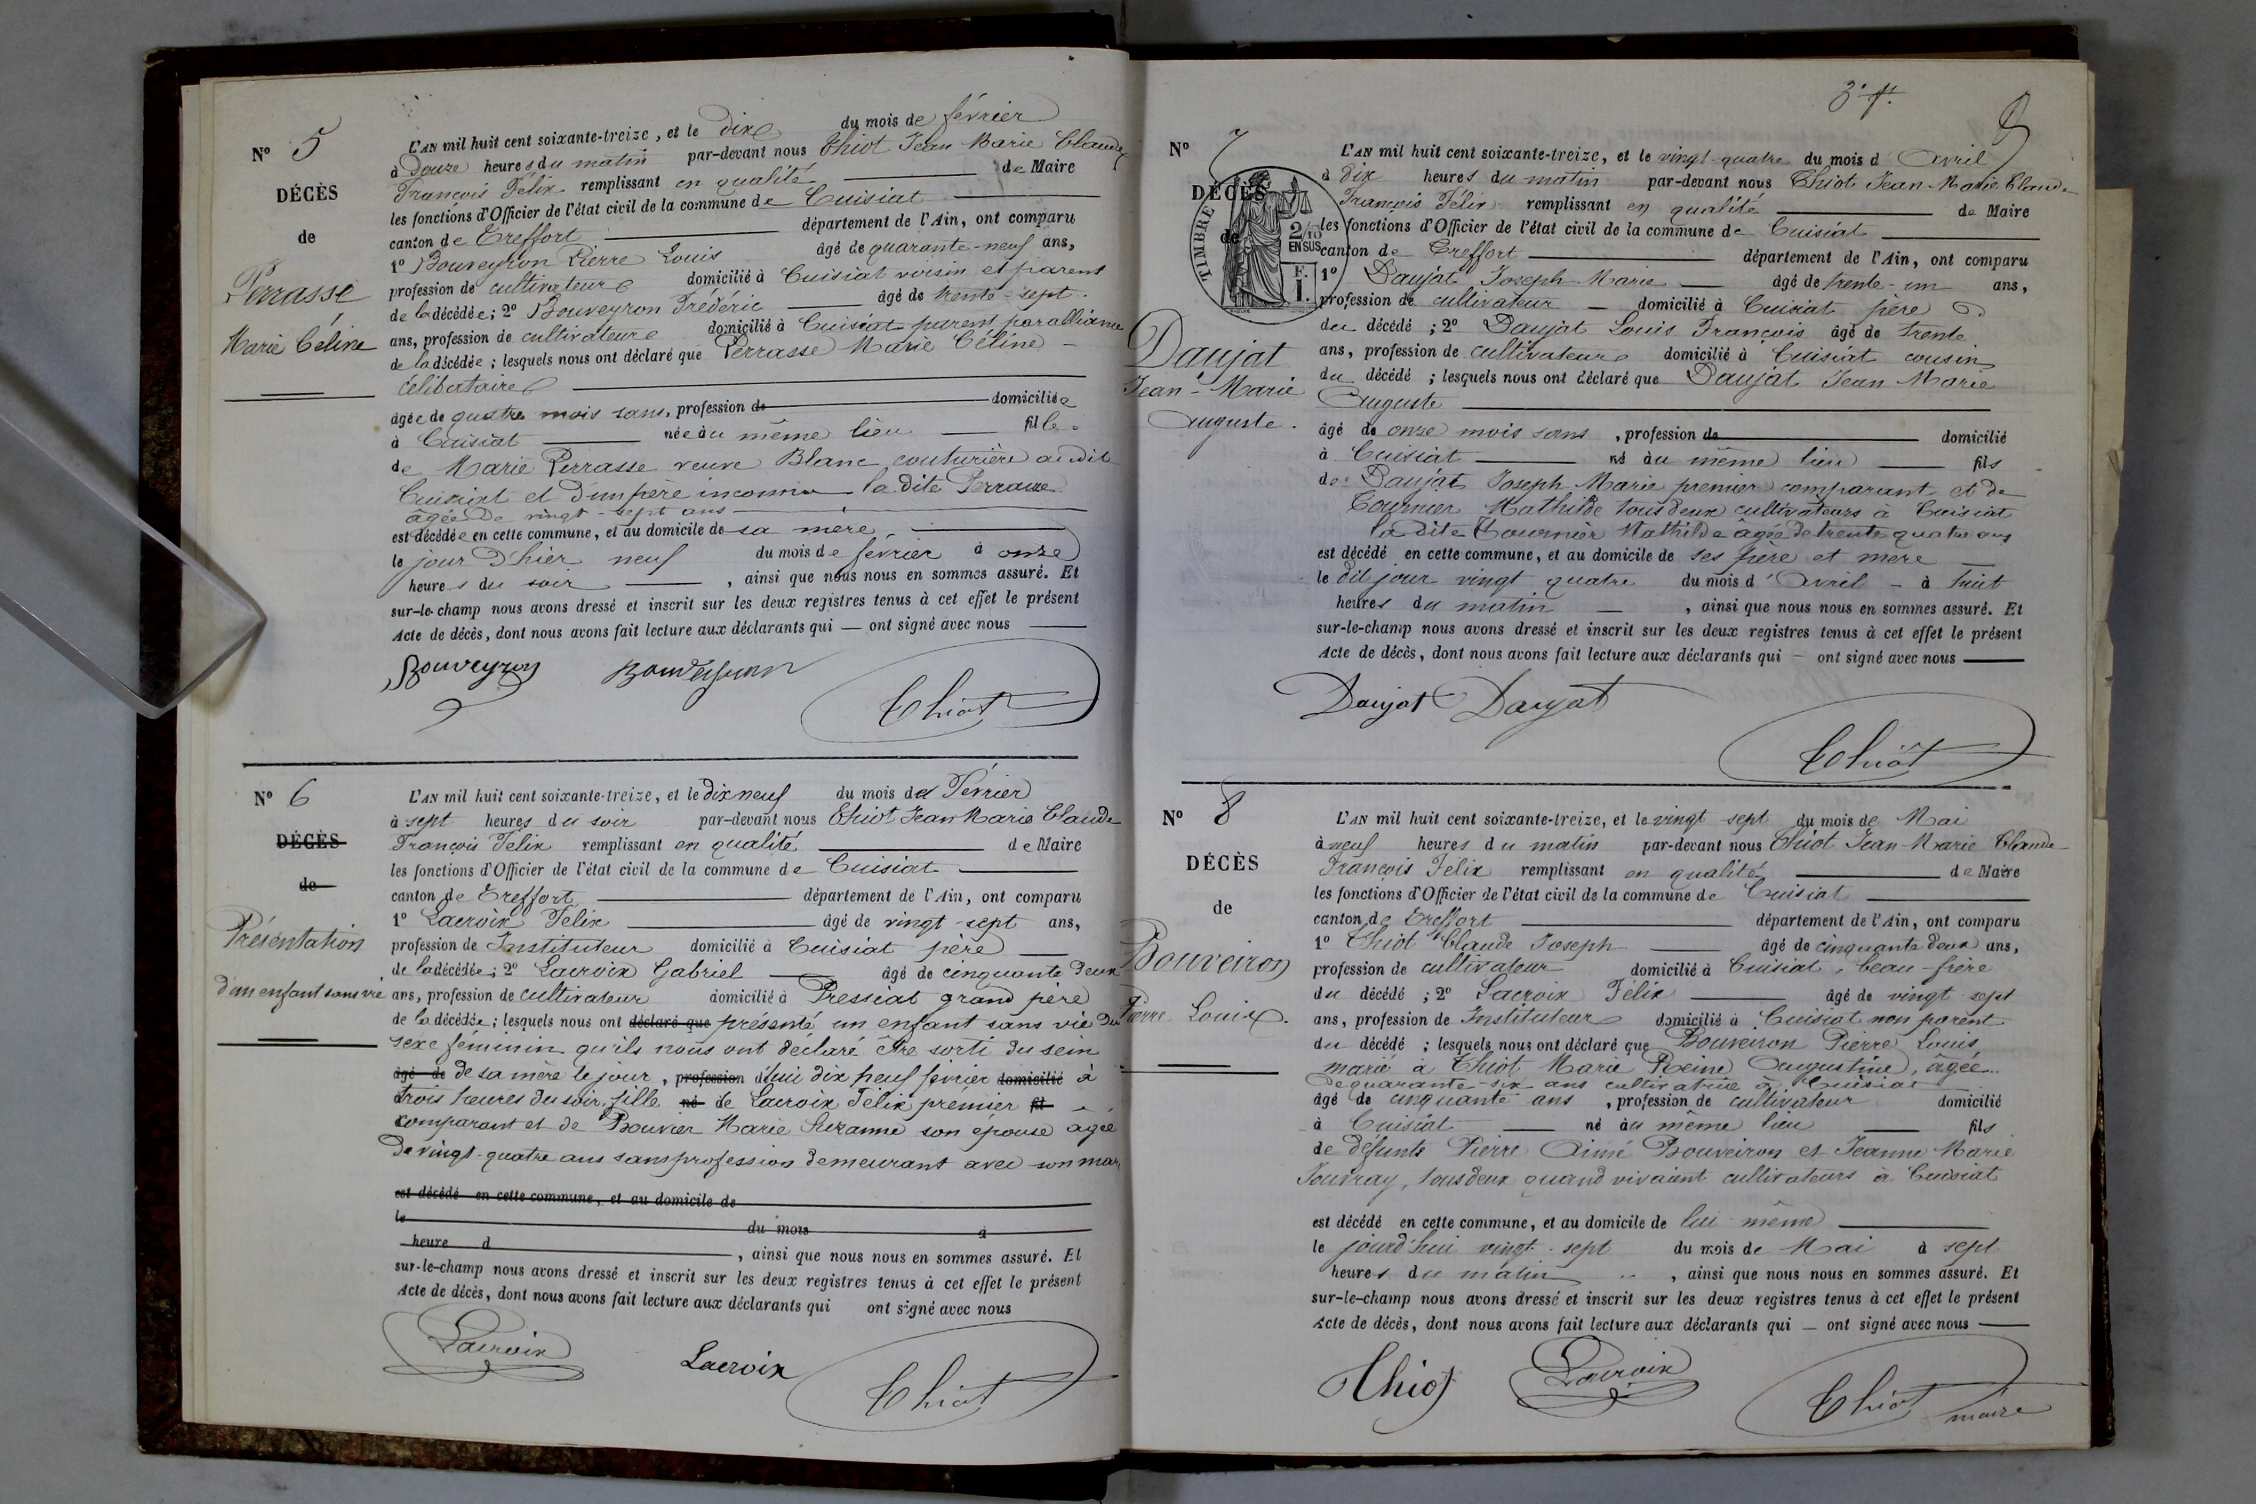 N° 5
DÉCÈS
de
Perrasse
Marie Céline
L'AN mil huit cent soixante-treize, et le dix du mois de février
à douze heures du matin par-devant nous Thiot Jean Marie Claude
François Félix remplissant en qualité de Maire
les fonctions d'Officier de l'état civil de la commune de Cuisiat
canton de Treffort département de l'Ain, ont comparu
1° Bouveyron Pierre Louis âgé de quarante-neuf ans,
profession de cultivateur domicilié à Cuisiat voisin et parent
de la décédée; 2° Bouveyron Frédéric âgé de trente-sept
ans, profession de cultivateur domicilié à Cuisiat parent par alliance
de la décédée; lesquels nous ont déclaré que Perrasse Marie Céline
célibataire
âgée de quatre mois sans, profession de domiciliée
à Cuisiat née au même lieu fille
de Marie Perrasse veuve Blanc couturière audit
Cuisiat et d'un père inconnu la dite Perrasse
âgée de vingt-sept ans
est décédée en cette commune, et au domicile de sa mère
le jour d'hier neuf du mois de février à onze
heures du soir, ainsi que nous nous en sommes assuré. Et
sur-le-champ nous avons dressé et inscrit sur les deux registres tenus à cet effet le présent
Acte de décès, dont nous avons fait lecture aux déclarants qui — ont signé avec nous
Bouveyron Bouveyron
Thiot
N° 6
DÉCÈS
de
Présentation
d'un enfant sans vie
L'AN mil huit cent soixante-treize, et le dix neuf du mois de Février
à sept heures du soir par-devant nous Thiot Jean Marie Claude
François Félix remplissant en qualité de Maire
les fonctions d'Officier de l'état civil de la commune de Cuisiat
canton de Treffort département de l'Ain, ont comparu
1° Lacroix Félix âgé de vingt-sept ans,
profession de Instituteur domicilié à Cuisiat père
de la décédée; 2° Lacroix Gabriel âgé de cinquante deux
ans, profession de cultivateur domicilié à Pressiat grand père
de la décédée; lesquels nous ont déclaré que présenté un enfant sans vie du
sexe féminin qu'ils nous ont déclaré être sorti du sein
âgé de de sa mère le jour, profession d'hui dix neuf février domicilié à
trois heures du soir, fille né de Lacroix Félix premier fil
comparant et de Bouvier Marie Suzanne son épouse âgée
de vingt-quatre ans sans profession demeurant avec son mari
est décédé en cette commune, et au domicile de
le du mois à
heure d, ainsi que nous nous en sommes assuré. Et
sur-le-champ nous avons dressé et inscrit sur les deux registres tenus à cet effet le présent
Acte de décès, dont nous avons fait lecture aux déclarants qui ont signé avec nous
Lacroix Lacroix
Thiot
8
N° 7
DÉCÈS
de
TIMBRE
2/10
EN SUS
F.
1.
Daujat
Jean-Marie
Auguste.
L'AN mil huit cent soixante-treize, et le vingt-quatre du mois d'Avril
à dix heures du matin par-devant nous Thiot Jean-Marie Claude
François Félix remplissant en qualité de Maire
les fonctions d'Officier de l'état civil de la commune de Cuisiat
canton de Treffort département de l'Ain, ont comparu
1° Daujat Joseph Marie âgé de trente-un ans,
profession de cultivateur domicilié à Cuisiat père
du décédé; 2° Daujat Louis François âgé de trente
ans, profession de cultivateur domicilié à Cuisiat cousin
du décédé; lesquels nous ont déclaré que Daujat Jean Marie
Auguste
âgé de onze mois sans, profession de domicilié
à Cuisiat né au même lieu fils
de Daujat Joseph Marie premier comparant et de
Tournier Mathilde tous deux cultivateurs à Cuisiat
la dite Tournier Mathilde âgée de trente quatre ans
est décédé en cette commune, et au domicile de ses père et mère
le dit jour vingt quatre du mois d'Avril à huit
heures du matin, ainsi que nous nous en sommes assuré. Et
sur-le-champ nous avons dressé et inscrit sur les deux registres tenus à cet effet le présent
Acte de décès, dont nous avons fait lecture aux déclarants qui — ont signé avec nous
Daujat Daujat
Thiot
N° 8
DÉCÈS
de
Bouveiron
Pierre Louis.
L'AN mil huit cent soixante-treize, et le vingt sept du mois de Mai
à neuf heures du matin par-devant nous Thiot Jean-Marie Claude
François Félix remplissant en qualité de Maire
les fonctions d'Officier de l'état civil de la commune de Cuisiat
canton de Treffort département de l'Ain, ont comparu
1° Thiot Claude Joseph âgé de cinquante deux ans,
profession de cultivateur domicilié à Cuisiat, beau-frère
du décédé; 2° Lacroix Félix âgé de vingt sept
ans, profession de Instituteur domicilié à Cuisiat non parent
du décédé; lesquels nous ont déclaré que Bouveiron Pierre Louis
marié à Thiot Marie Reine Augustine, âgée
de quarante-six ans cultivatrice à Cuisiat
âgé de cinquante ans, profession de cultivateur domicilié
à Cuisiat né au même lieu fils
de défunts Pierre Aimé Bouveiron et Jeanne Marie
Jouvray, tous deux quand vivaient cultivateurs à Cuisiat
est décédé en cette commune, et au domicile de lui-même
le jourd'hui vingt-sept du mois de Mai à sept
heures du matin, ainsi que nous nous en sommes assuré. Et
sur-le-champ nous avons dressé et inscrit sur les deux registres tenus à cet effet le présent
Acte de décès, dont nous avons fait lecture aux déclarants qui — ont signé avec nous
Thiot Lacroix
Thiot maire